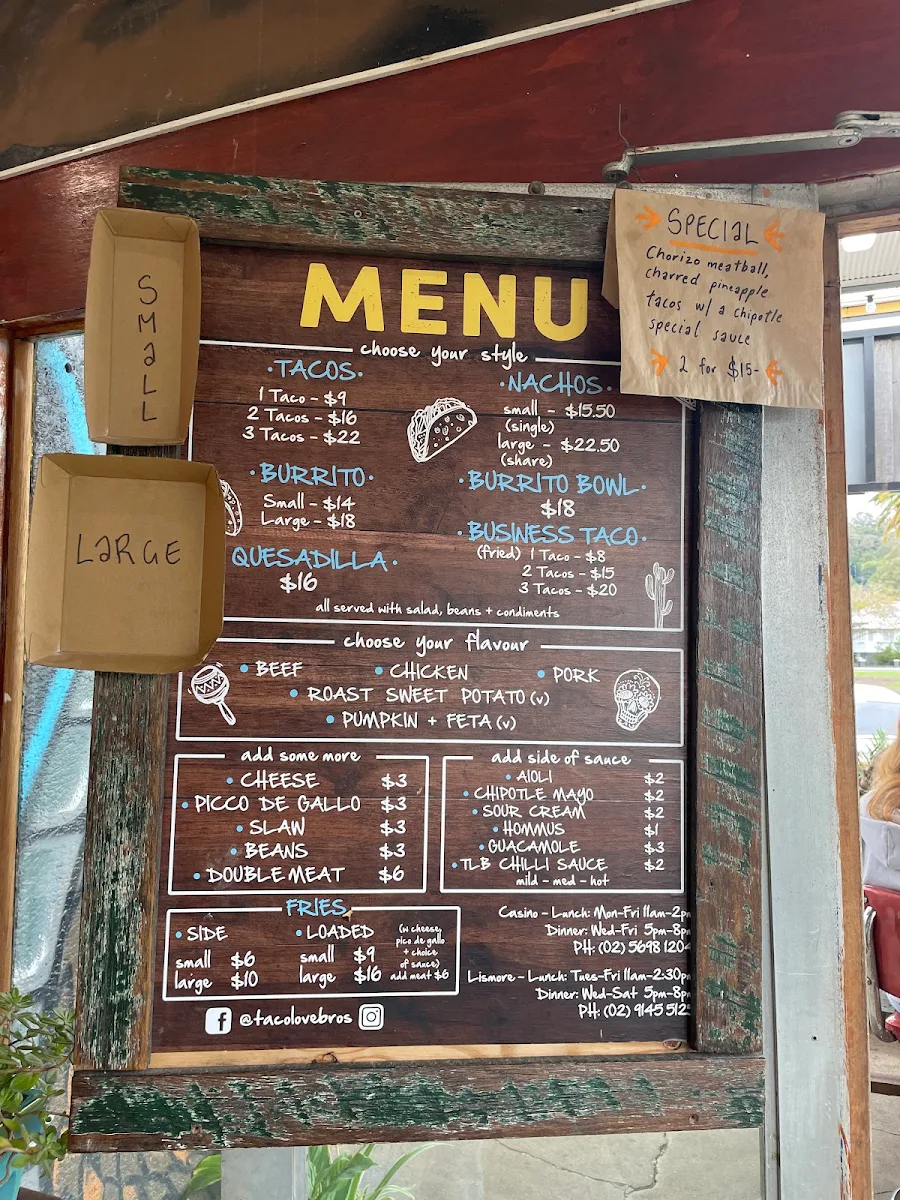 SMaLL
LaRGE
SPECIaL
Chorizo meatball,
charred pineapple
tacos w/ a chipotle
special sauce
2 for $15-
MENU
choose your style
·TACOS·
1 Taco - $9
2 Tacos - $16
3 Tacos - $22
·NACHOS·
small - $15.50
(single)
large - $22.50
(share)
·BURRITO·
Small - $14
Large - $18
·BURRITO BOWL·
$18
QUESADILLA·
$16
·BUSINESS TACO·
(fried) 1 Taco - $8
2 Tacos - $15
3 Tacos - $20
all served with salad, beans + condiments
choose your flavour
• BEEF • CHICKEN • PORK
• ROAST SWEET POTATO (v)
• PUMPKIN + FETA (v)
add some more
• CHEESE $3
• PICCO DE GALLO $3
• SLAW $3
• BEANS $3
• DOUBLE MEAT $6
add side of sauce
• AIOLI $2
• CHIPOTLE MAYO $2
• SOUR CREAM $2
• HOMMUS $1
• GUACAMOLE $3
• TLB CHILLI SAUCE $2
mild - med - hot
FRIES
• SIDE
small $6
large $10
• LOADED
small $9
large $16
(w cheese,
pico de gallo
+ choice
of sauce)
add meat $6
Casino - Lunch: Mon-Fri 11am-2p
Dinner: Wed-Fri 5pm-8p
PH: (02) 5698 1204
Lismore - Lunch: Tues-Fri 11am-2:30p
Dinner: Wed-Sat 5pm-8p
PH: (02) 9145 512
@tacolovebros